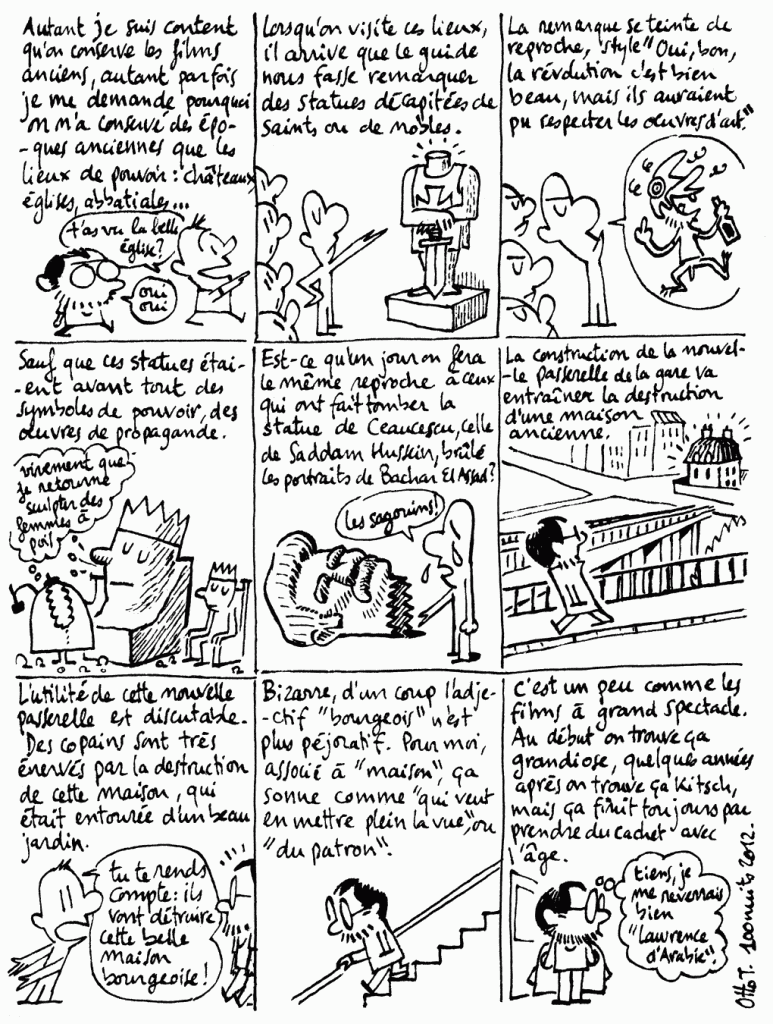 Autant je suis content
qu'on conserve les films
anciens, autant parfois
je me demande pourquoi
on n'a conservé des épo-
-ques anciennes que les
lieux de pouvoir : châteaux
églises, abbatiales...
t'as vu la belle
église ?
oui
oui
Lorsqu'on visite ces lieux,
il arrive que le guide
nous fasse remarquer
des statues décapitées de
saints ou de nobles.
La remarque se teinte de
reproche, style "Oui, bon,
la révolution c'est bien
beau, mais ils auraient
pu respecter les œuvres d'art."
Sauf que ces statues étai-
-ent avant tout des
symboles de pouvoir, des
œuvres de propagande.
vivement que
je retourne
sculpter des
femmes à
poil
Est-ce qu'un jour on fera
le même reproche à ceux
qui ont fait tomber la
statue de Ceaucescu, celle
de Saddam Hussein, brûlé
les portraits de Bachar El Assad ?
Les sagouins !
La construction de la nouvel-
-le passerelle de la gare va
entraîner la destruction
d'une maison
ancienne.
L'utilité de cette nouvelle
passerelle est discutable.
Des copains sont très
énervés par la destruction
de cette maison, qui
était entourée d'un beau
jardin.
tu te rends
compte : ils
vont détruire
cette belle
maison
bourgeoise !
Bizarre, d'un coup l'adje-
-ctif "bourgeois" n'est
plus péjoratif. Pour moi,
associé à "maison", ça
sonne comme "qui veut
en mettre plein la vue", ou
"du patron".
C'est un peu comme les
films à grand spectacle.
Au début on trouve ça
grandiose, quelques années
après on trouve ça Kitsch,
mais ça finit toujours par
prendre du cachet avec
l'âge.
tiens, je
me reverrais
bien
"Lawrence
d'Arabie".
Otto T. 100noncits 2012.